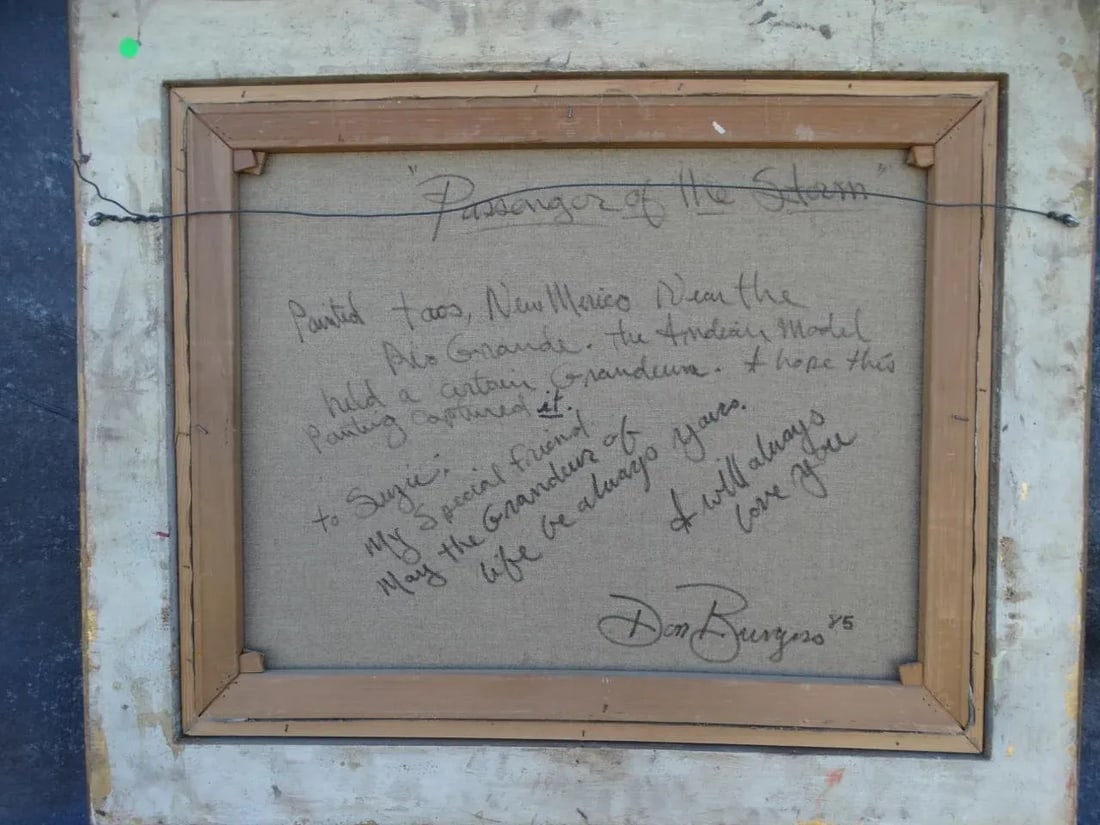 "Passenger of the Storm"
Painted taos, New Mexico Near the
Rio Grande. the Indian Model
held a certain Grandeur. I hope this
Painting captured it.
to Suzie:
My Special friend
May the Grandeur of
life be always yours.
I will always
love you
Don Burgess